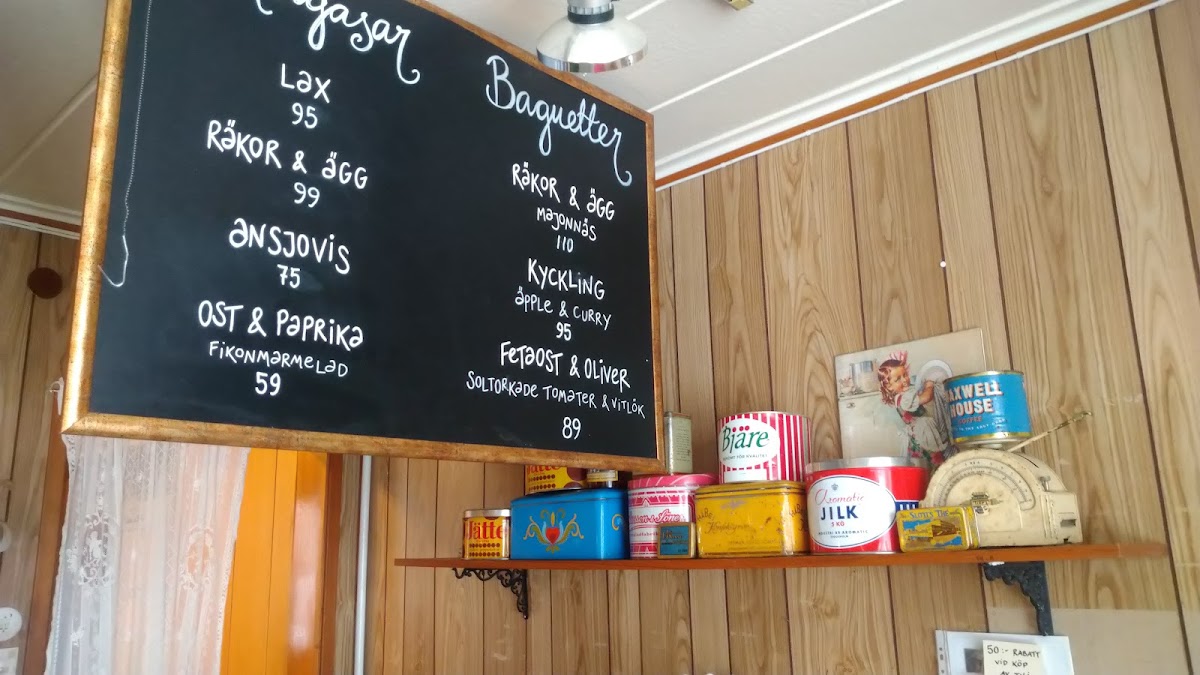 Lax
95
Räkor & Ägg
99
Ansjovis
75
Ost & Paprika
Fikonmarmelad
59
Baguetter
Räkor & Ägg
Majonnäs
110
Kyckling
Äpple & Curry
95
Fetaost & Oliver
Soltorkade Tomater & Vitlök
89
Bjäre
MAXWELL
HOUSE
Aromatic
JILK
5 KG
Jätte
50:- RABATT
VID KÖP